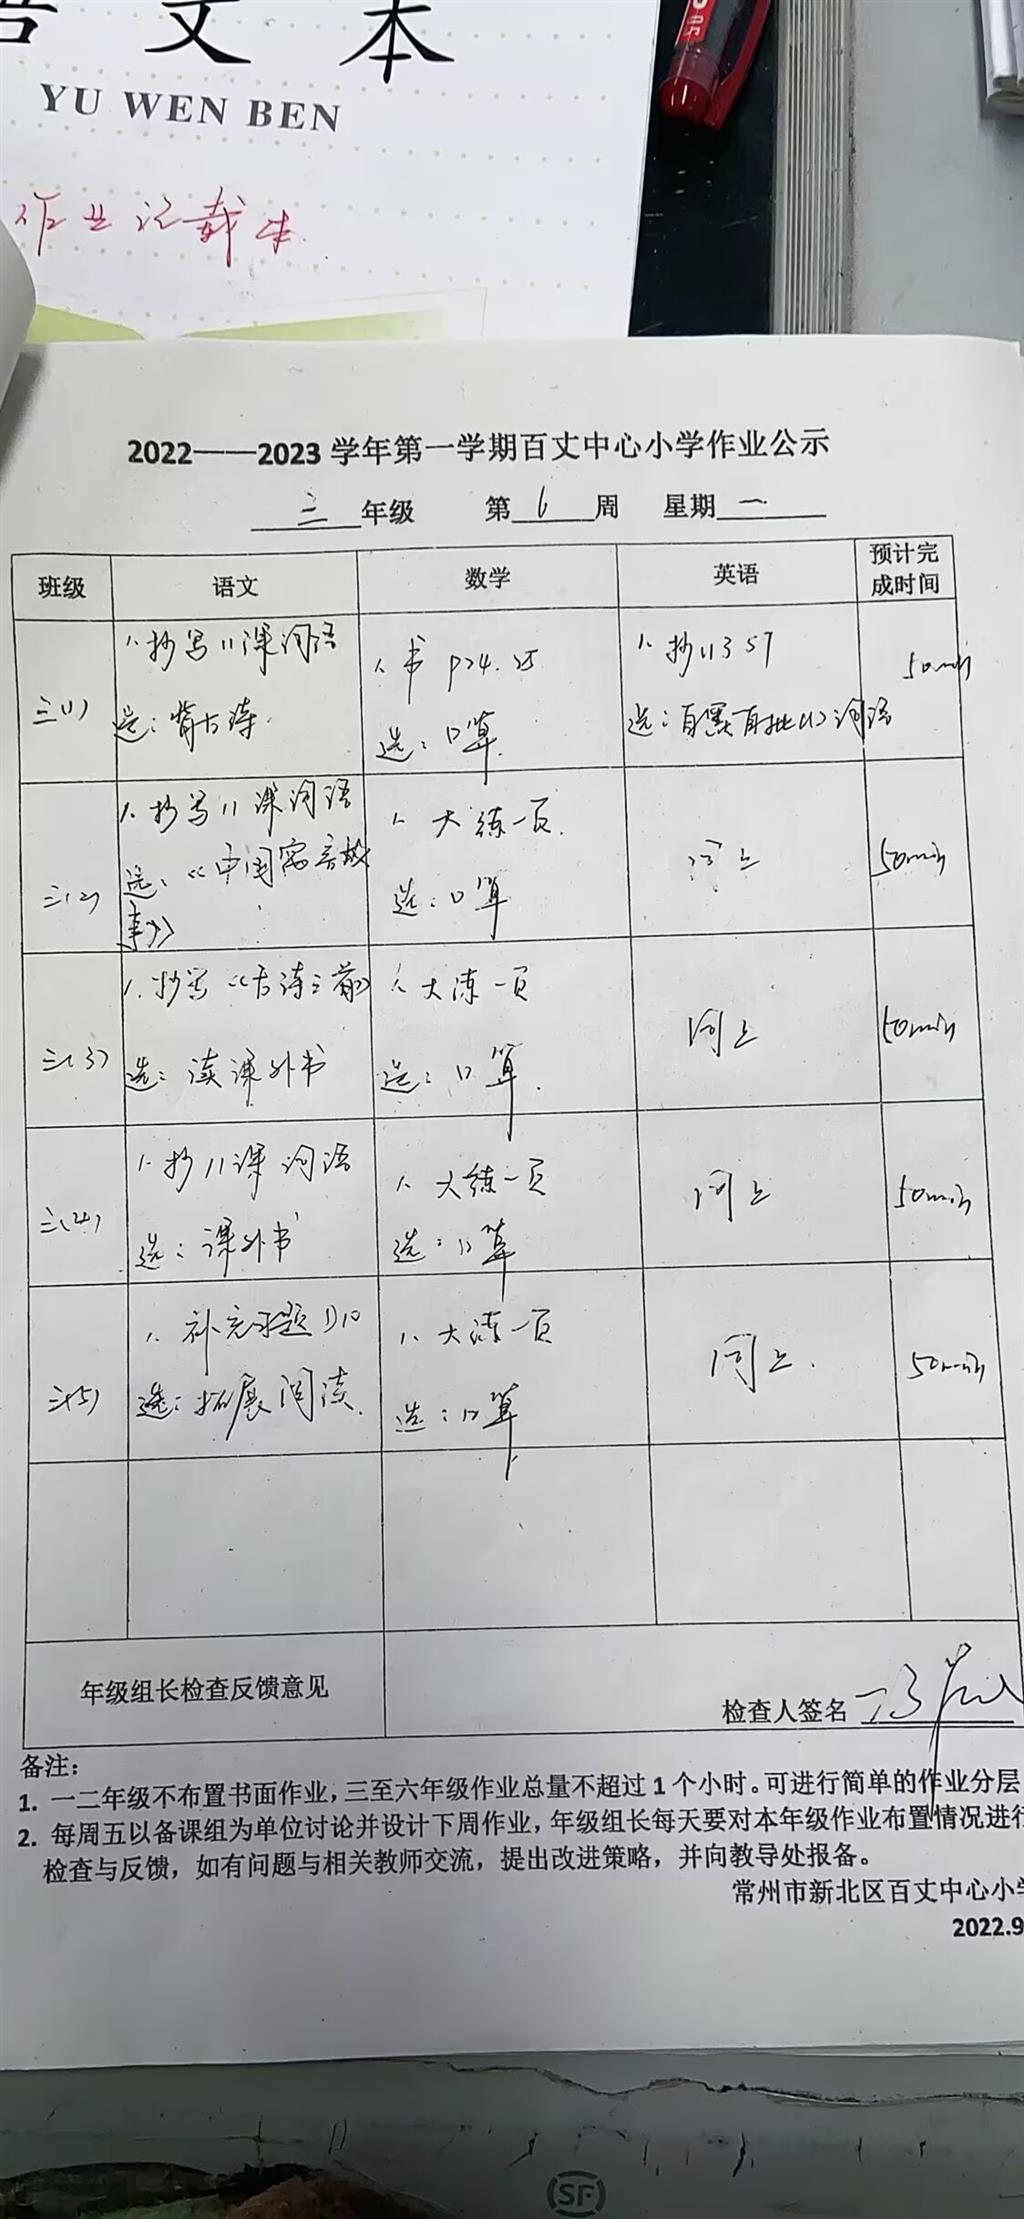 语文本
YU WEN BEN
作业记载本
05
2022——2023 学年第一学期百丈中心小学作业公示
三 年级 第 6 周 星期 一
班级 语文 数学 英语 预计完成时间
三(1)
1. 抄写11课词语
选：背古诗.
1. 书 P24. 25
选：口算
1. 抄U3 57
选：自默自批U2词语
50min
三(2)
1. 抄写11课词语
选：《中国寓言故
事》
1. 大练一页.
选：口算
同上
50min
三(3)
1. 抄写《古诗三首》
选：读课外书
1. 大练一页
选：口算.
同上
50min
三(4)
1. 抄11课词语
选：课外书
1. 大练一页
选：口算
同上
50min
三(5)
1. 补充习题P10
选：拓展阅读.
1. 大练一页
选：口算
同上.
50min
年级组长检查反馈意见
检查人签名
备注：
1. 一二年级不布置书面作业，三至六年级作业总量不超过 1 个小时。可进行简单的作业分层
2. 每周五以备课组为单位讨论并设计下周作业，年级组长每天要对本年级作业布置情况进行
检查与反馈，如有问题与相关教师交流，提出改进策略，并向教导处报备。
常州市新北区百丈中心小学
2022.9
SF